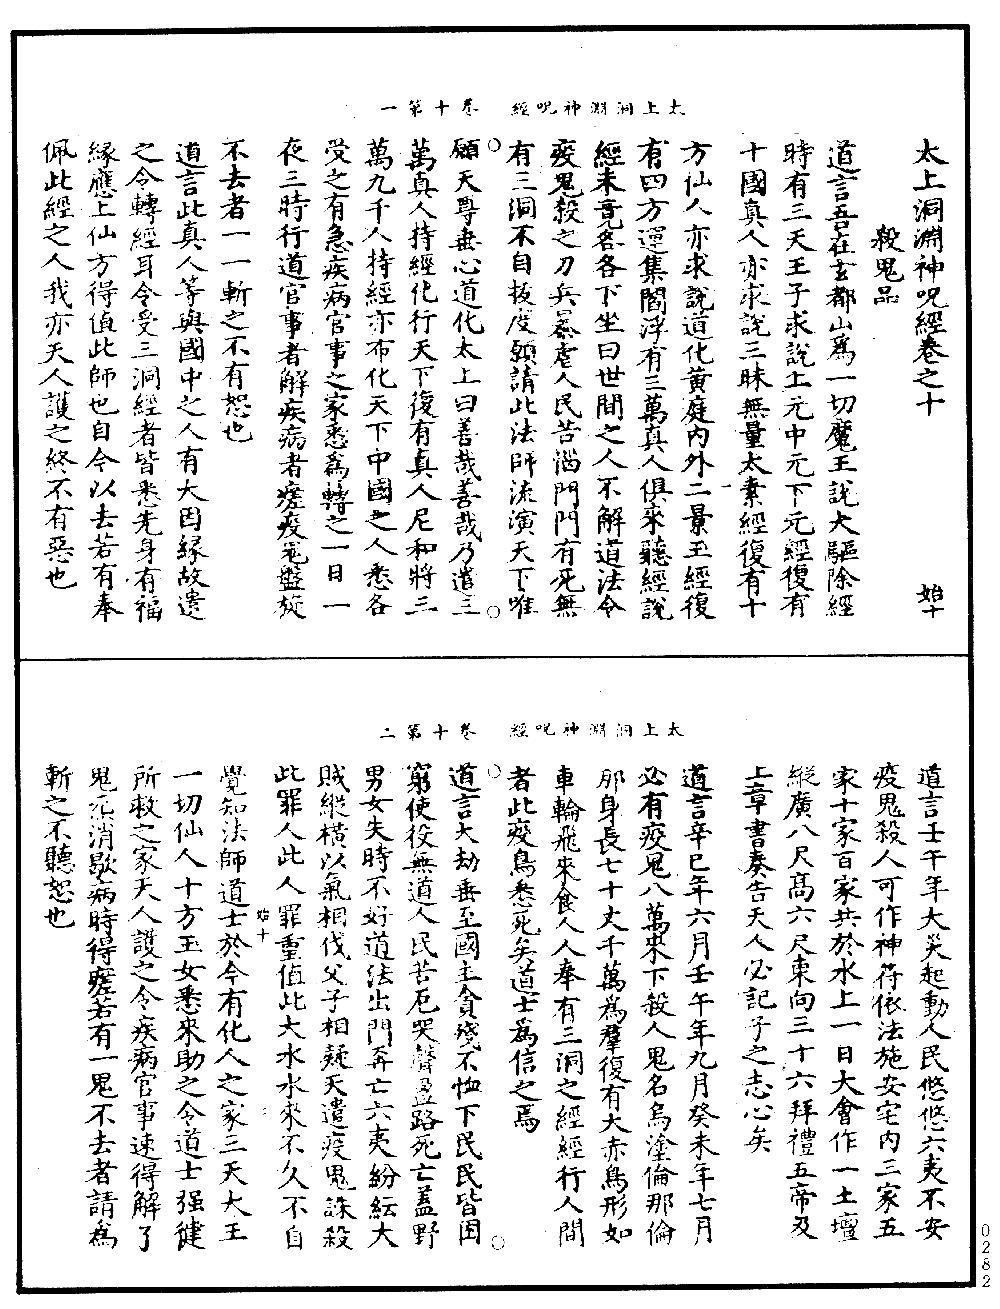 太上洞淵神呪經　卷十第一
太上洞淵神呪經卷之十　始十
殺鬼品
道言吾在玄都山爲一切魔王說大驅除經
時有三天王子求說上元中元下元經復有
十國真人亦求說三昧無量太素經復有十
方仙人亦求說道化黃庭內外二景玉經復
有四方運集閻浮有三萬真人俱來聽經說
經未竟各各下坐曰世間之人不解道法令
疫鬼殺之刀兵暴虐人民苦惱門門有死無
有三洞不自拔度願請此法師流演天下唯
願天尊垂心道化太上曰善哉善哉乃遣三
萬真人持經化行天下復有真人尼和將三
萬九千人持經亦布化天下中國之人悉各
受之有急疾病官事之家悉爲轉之一日一
夜三時行道官事者解疾病者瘥疫鬼盤旋
不去者一一斬之不有恕也
道言此真人等與國中之人有大因緣故遣
之令轉經耳令受三洞經者皆悉先身有福
緣應上仙方得值此師也自今以去若有奉
佩此經之人我亦天人護之終不有惡也
太上洞淵神呪經　卷十第二
道言壬午年大災起動人民悠悠六夷不安
疫鬼殺人可作神符依法施安宅內三家五
家十家百家共於水上一日大會作一土壇
縱廣八尺高六尺東向三十六拜禮五帝及
上章書奏告天人必記子之志心矣
道言辛巳年六月壬午年九月癸未年七月
必有疫鬼八萬來下殺人鬼名烏塗倫那倫
那身長七十丈千萬爲羣復有大赤鳥形如
車輪飛來食人人奉有三洞之經經行人間
者此疫鳥悉死矣道士爲信之焉
道言大劫垂至國主貪殘不恤下民民皆困
窮使役無道人民苦厄哭聲盈路死亡蓋野
男女失時不好道法出門奔亡六夷紛紜大
賊縱橫以氣相伐父子相疑天遣疫鬼誅殺
此罪人此人罪重值此大水水來不久不自
始十
覺知法師道士於今有化人之家三天大王
一切仙人十方玉女悉來助之令道士强健
所救之家天人護之令疾病官事速得解了
鬼兀消歇病時得瘥若有一鬼不去者請爲
斬之不聽恕也
0282